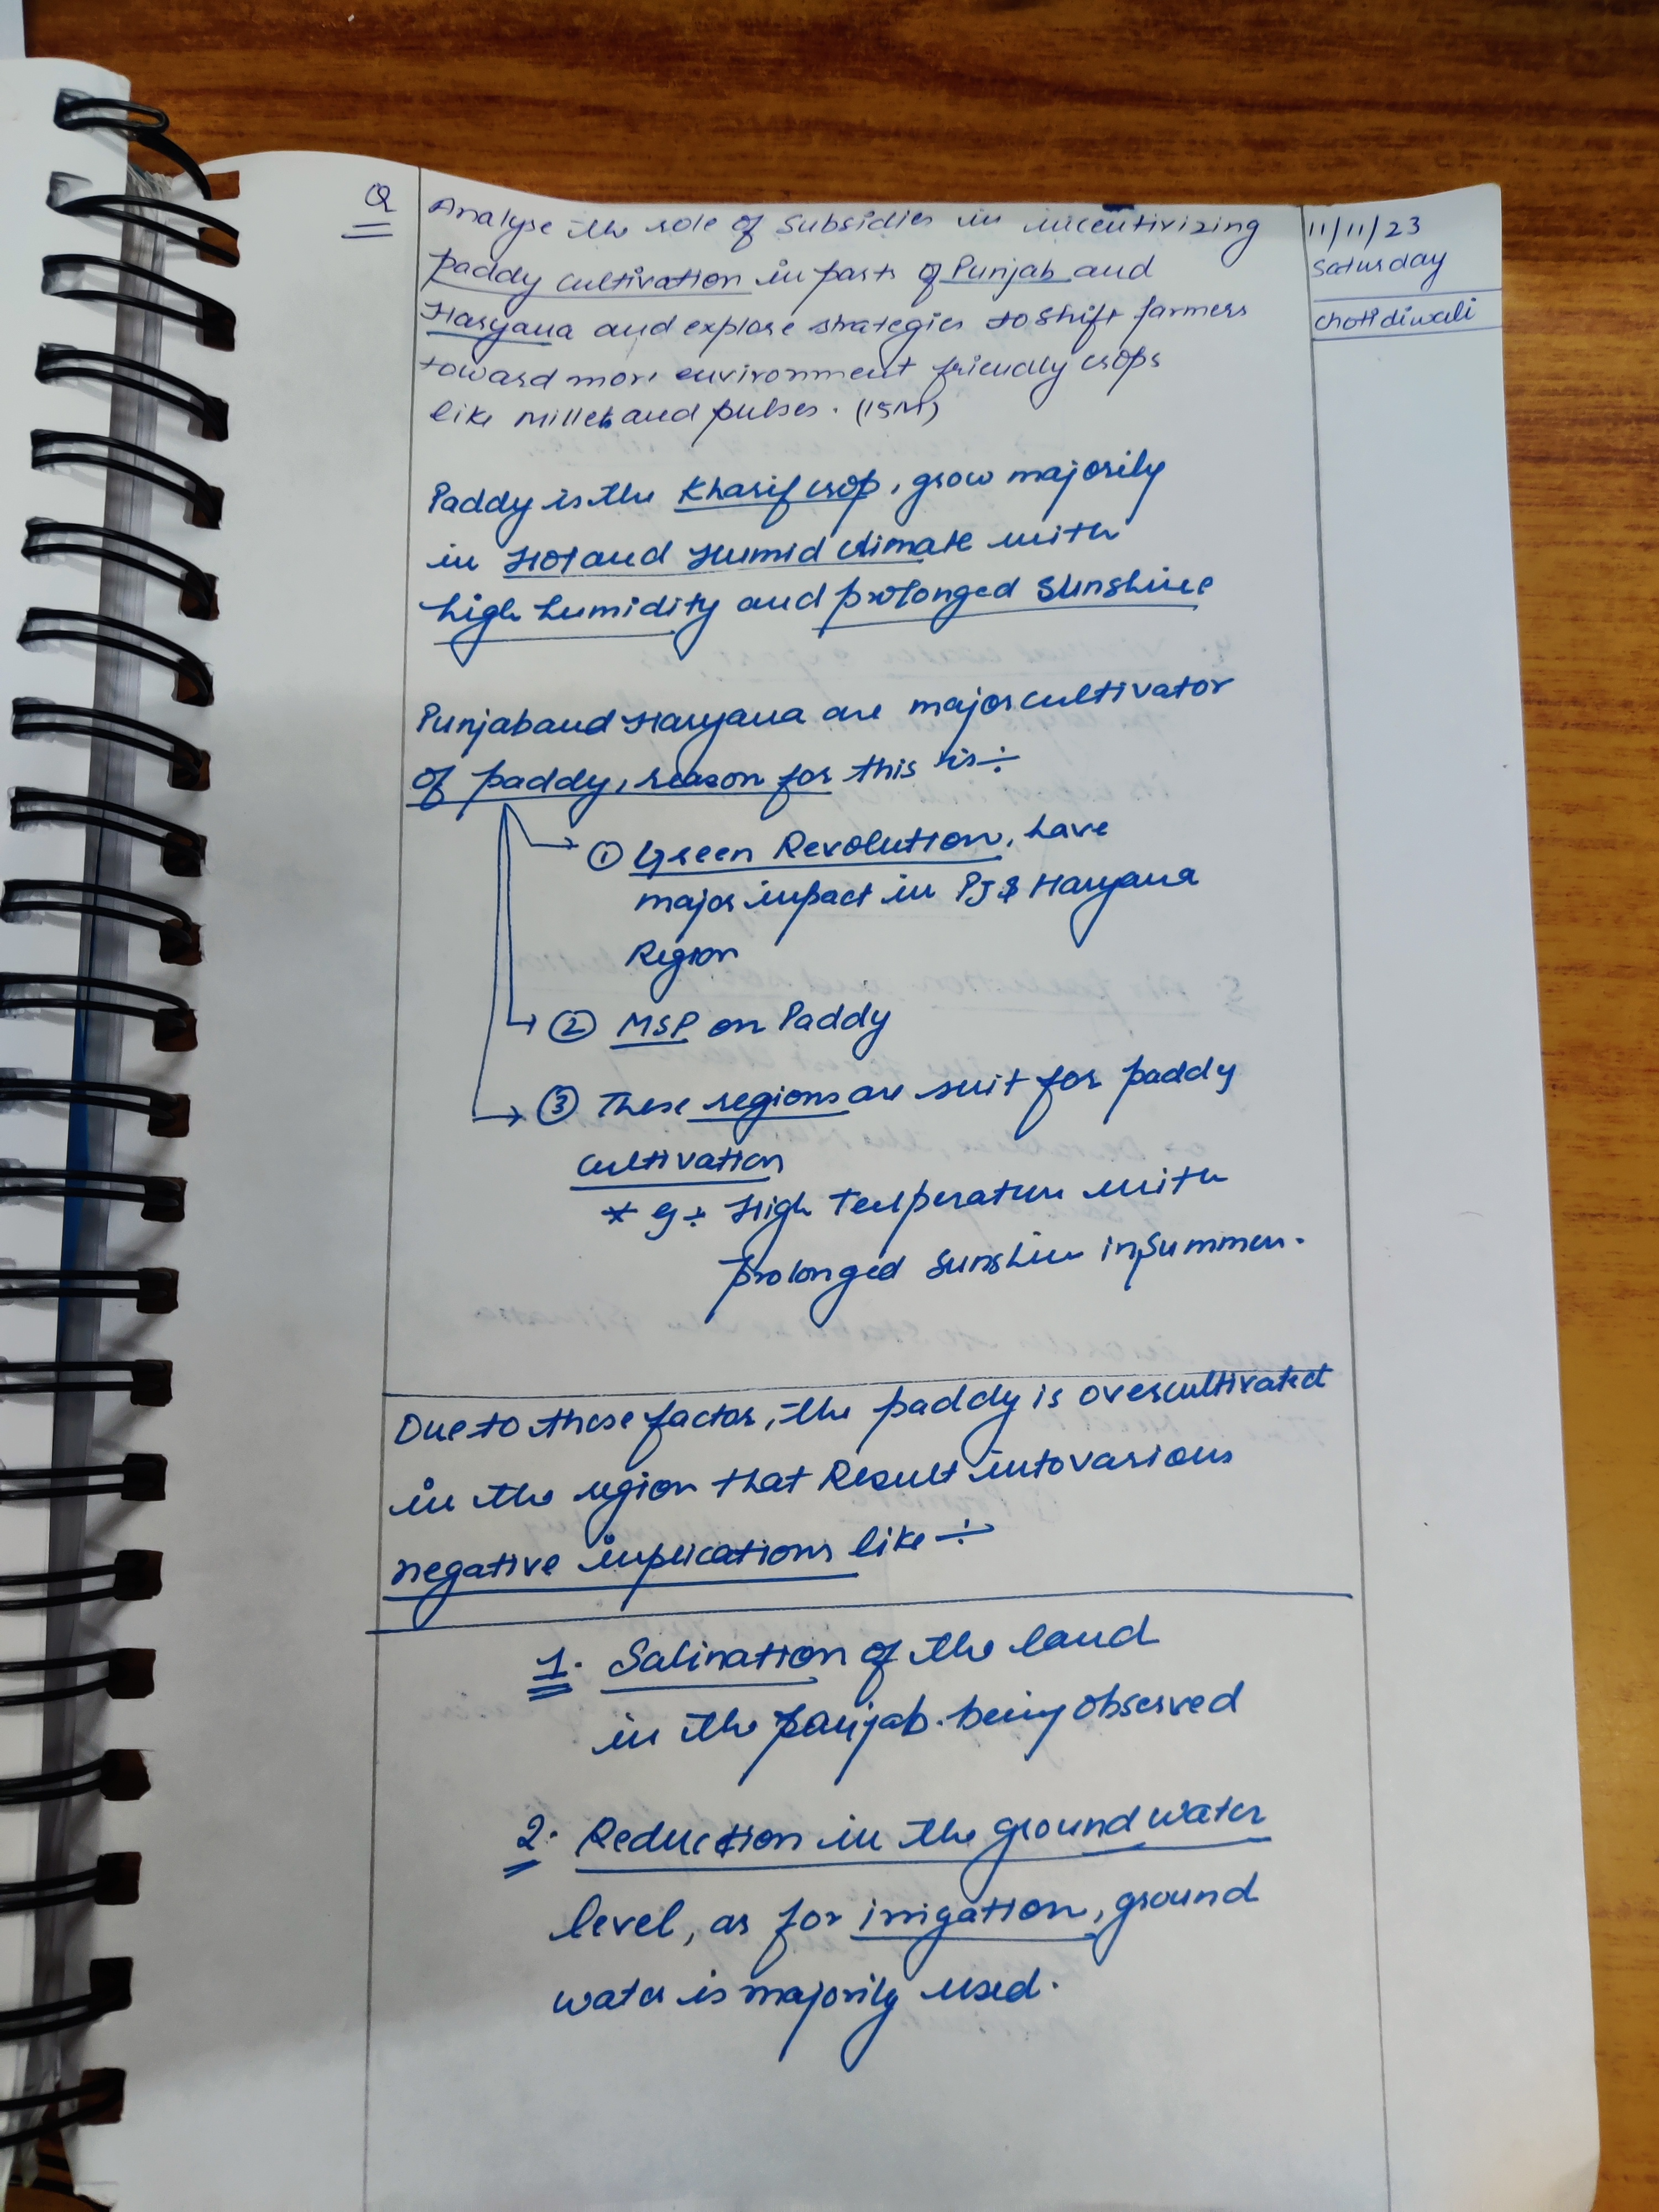 Q
Analyse the role of Subsidies in incentivizing
paddy cultivation in parts of Punjab and
Haryana and explore strategies to shift farmers
toward more environment friendly crops
like Millets and pulses. (15M)
11/11/23
Saturday
Choti diwali
Paddy is the Kharif crop, grow majorily
in Hot and Humid climate with
high humidity and prolonged Sunshine
Punjab and Haryana are major cultivator
of paddy, reason for this is ÷
① Green Revolution, have
major impact in PJ & Haryana
Region
② MSP on Paddy
③ These regions are suit for paddy
cultivation
* eg ÷ High Temperature with
prolonged Sunshine in Summer.
Due to these factor, the paddy is overcultivated
in the region that Result into various
negative implications like ÷
1. Salination of the land
in the Punjab. being observed
2. Reduction in the ground water
level, as for irrigation, ground
water is majorily used.